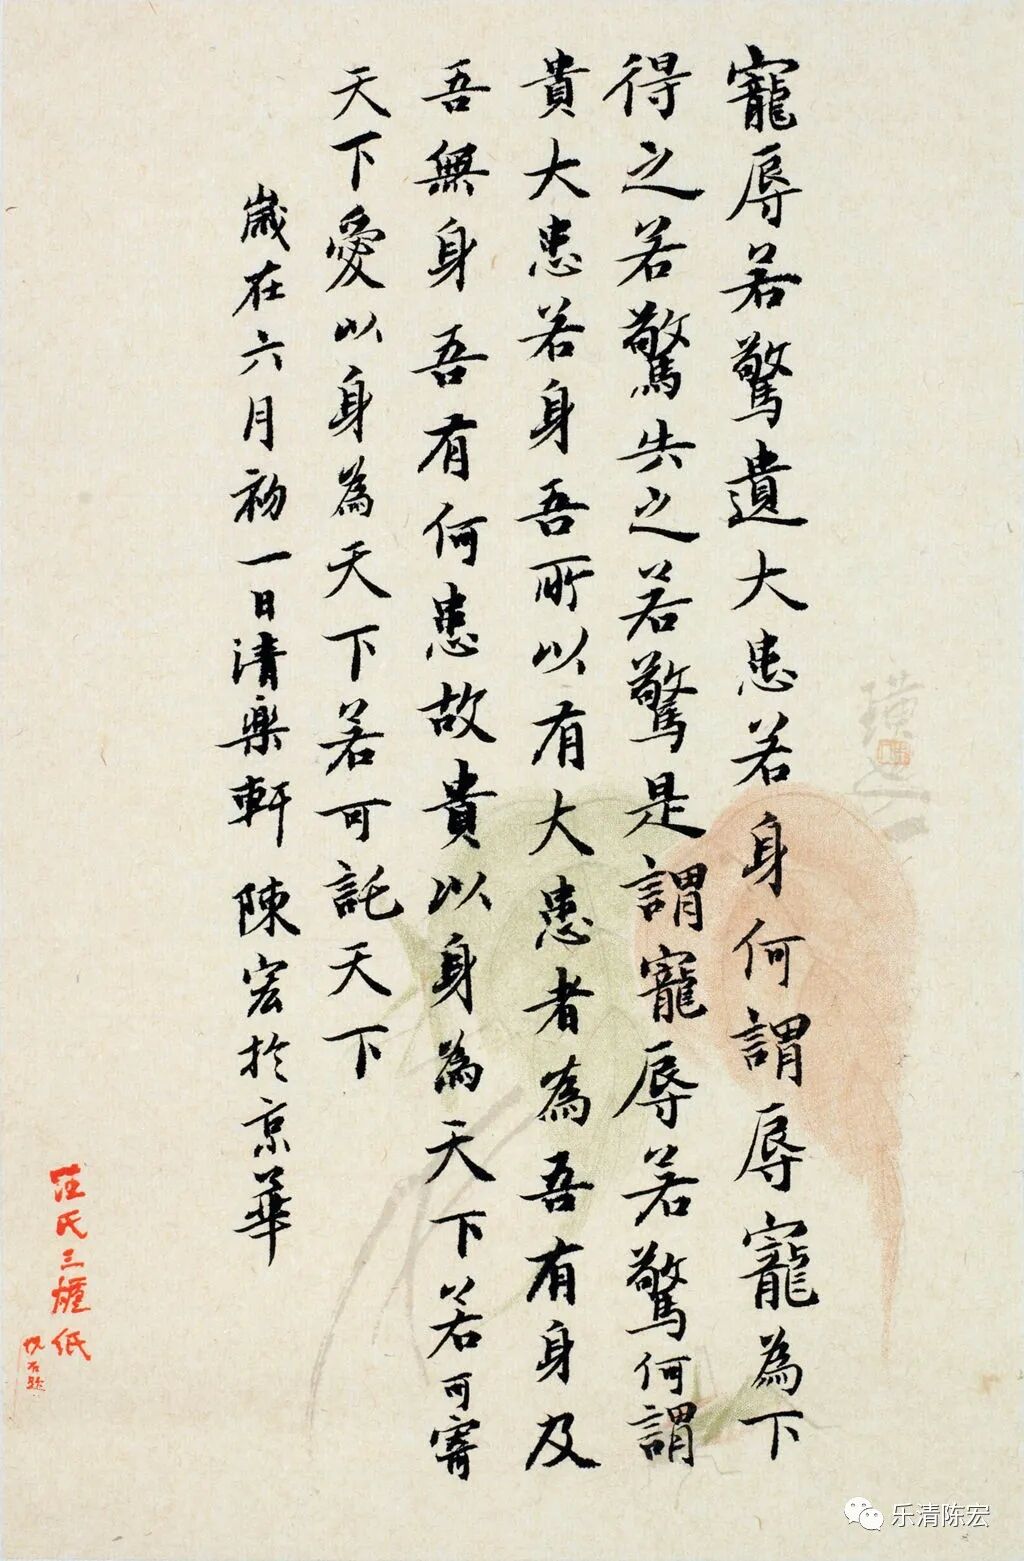 寵辱若驚遺大患若身何謂辱寵為下
得之若驚失之若驚是謂寵辱若驚何謂
貴大患若身吾所以有大患者為吾有身及
吾無身吾有何患故貴以身為天下若可寄
天下愛以身為天下若可託天下
歲在六月初一日清楽軒 陳宏於京華
汪氏三
乐清陈宏